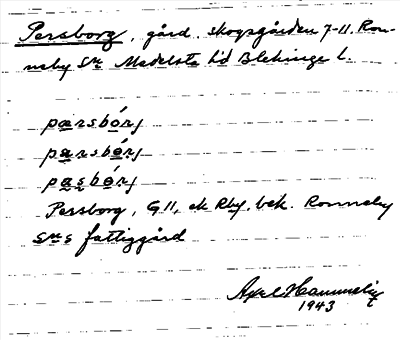 Persborg, gård. skogsgården 7-11. Ron-
neby Sn Medelsta hd Blekinge l.
pærsbórj
parsbórj
pasbórj
Persborg, G 11, ek Rby. bek. Ronneby
sns fattiggård
Axel Hammelig
1943